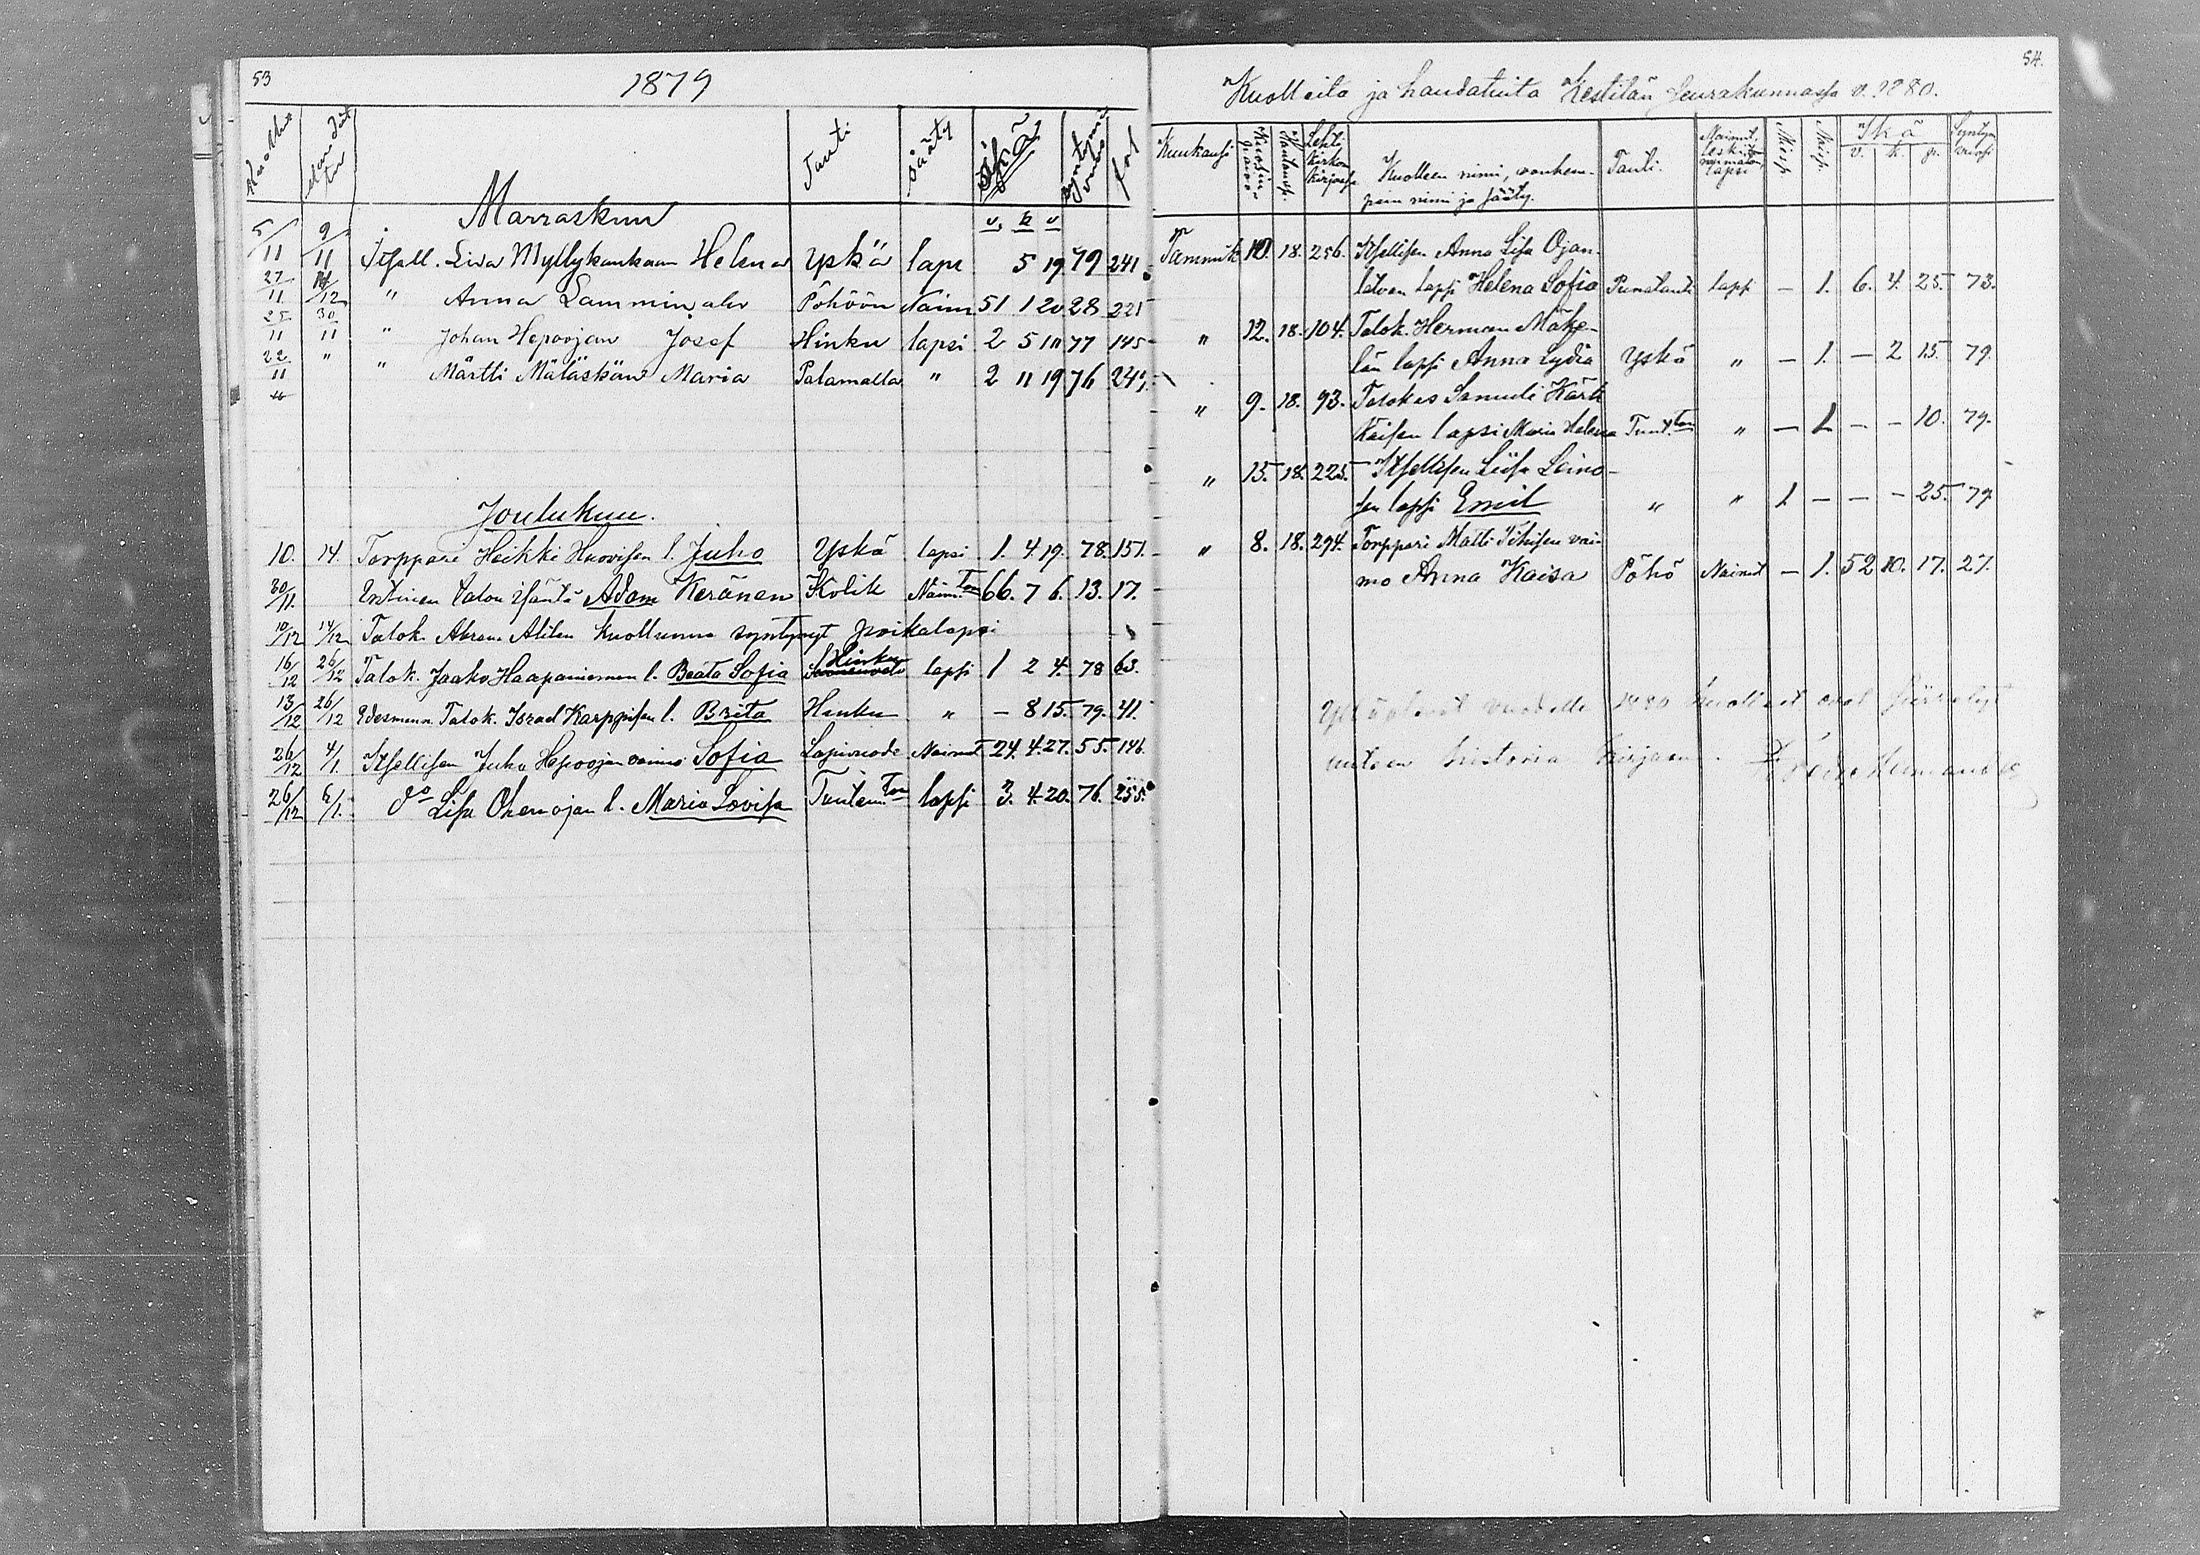 53
1879
Kuollut Haudattu Tauti sääty Ikä syntymä vuosi fol
v. k v
Marraskuu
5/11 9/11 Itsell. Liisa Myllykankaan Helena Yskä laps 5 19 79 241
27/11 14/12 " Anna Lamminaho Pöhöön Nainu 51 1 20 28 221
25/11 30/11 " Johan Hepoojan Josef Hinku lapsi 2 5 77 145
22/11 " " Martti Mäläskän Maria Palamalla " 2 11 19 76 247
Joulukuu.
10. 14. Torppari Heikki Huovisen l. Juho Yskä lapsi 1. 4. 19. 78. 151.
30/11. Entinen talon isäntä Adam Keränen Kolik Naim.ton 66. 7 6. 13. 17.
10/12 14/12 Talok. Abram Alilan kuollunna syntynyt poikalapsi
16/12 26/12 Talok. Jaako Haapaniemen l. Beata Sofia Hinku lapsi 1 2 4. 78 63.
13/12 26/12 Edesmenn. Talok. Israel Karppisen l. Brita Hinku " – 8 15. 79. 41.
26/12 4/1. Itsellisen Juho Hepoojan vaimo Sofia Lapsivuode Nainut 24. 4. 27. 55. 146.
26/12 6/1. do Lisa Ohenojan l. Maria Lovisa Tuntem.ton lapsi 3. 4. 20. 76. 255.
54.
Kuolleita ja haudatuita Kestilän seurakunnassa v. 1880.
Kuukausi Kuolinpäivä Hautauspäivä Lehti kirkonkirjassa Kuolleen nimi, vanhempain nimi ja sääty. Tauti. Nainut, leski, naimaton, lapsi Miesp. Naisp. Ikä v. k. p. Syntym. vuosi
Tammik. 10. 18. 256. Itsellisen Anna Lisa Ojan-
latvan lapsi Helena Sofia Punatauti lapsi – 1. 6. 4. 25. 73.
" 12. 18. 104. Talok. Herman Mäke-
län lapsi Anna Lydia Yskä " – 1. – 2 15. 79.
" 9. 18. 93. Talokas Samuli Kärk-
käisen lapsi Maria Helena Tunt.ton " – 1. – – 10. 79.
" 15. 18. 225. Itsellisen Liisa Leino-
sen lapsi Emil " " 1 – – – 25. 79
" 8. 18. 294. Torppari Matti Tihisen vai-
mo Anna Kaisa Pöhö Nainut – 1. 52 10. 17. 27.
Ylläolevat vuodelle 1880 kuolleet ovat siirretyt
uuteen historia kirjaan.